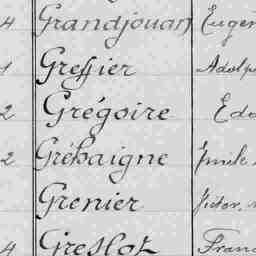 4 Grandjouan Eugèn
1 Greffier Adolp
2 Grégoire Edo
2 Gréhaigne Emile
Grenier Victor
4 Greslot Franc